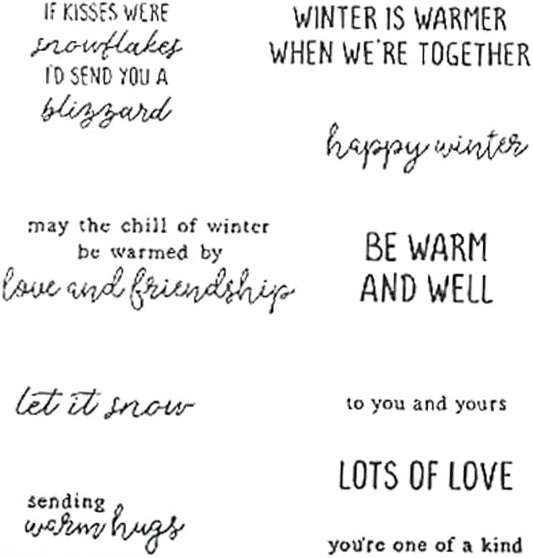 IF KISSES WERE
snowflakes
I'D SEND YOU A
blizzard
WINTER IS WARMER
WHEN WE'RE TOGETHER
happy winter
may the chill of winter
be warmed by
love and friendship
BE WARM
AND WELL
let it snow
to you and yours
sending
warm hugs
LOTS OF LOVE
you're one of a kind